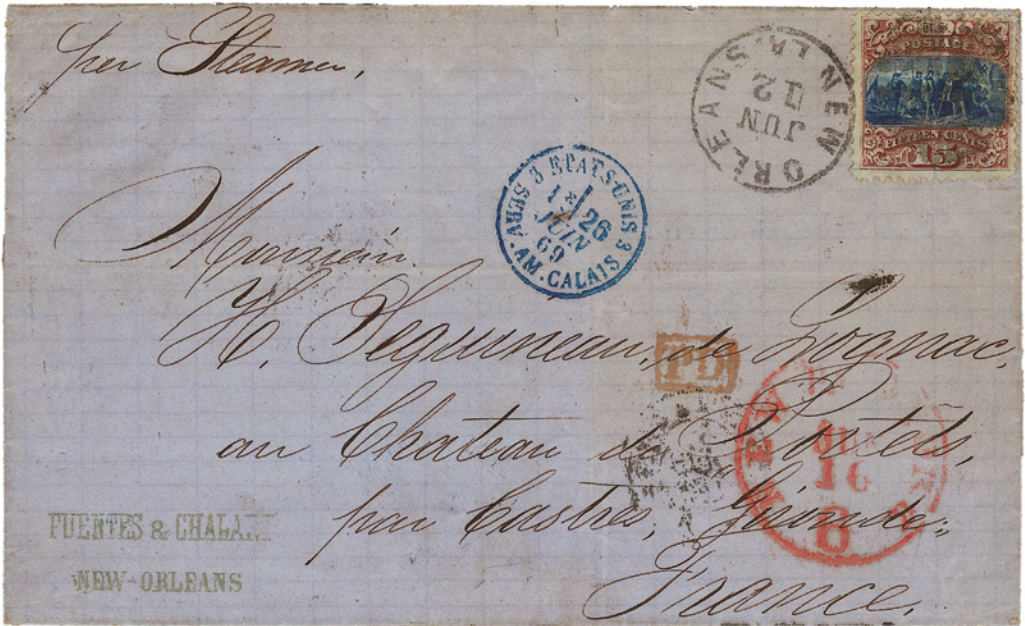 per Steamer.
NEW ORLEANS LA.
JUN
12
U.S.
POSTAGE
FIFTEEN CENTS
15
3 ETATS-UNIS 3
SERV. AM. CALAIS
1E
26
JUIN
69
Monsieur
H. Seguineau, de Lognac,
PD
au Chateau de Portets,
NEW YORK
JUN
16
6
par Castres, Gironde.
France.
FUENTES &
NEW-ORLEANS